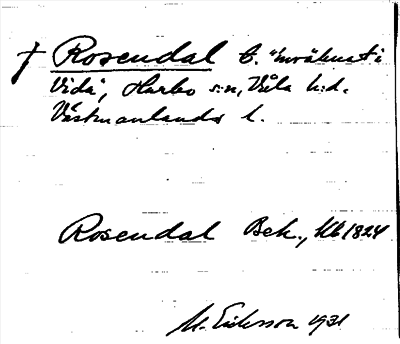 † Rosendal t. "Invähus" i
Vida", Harbo s:n, Våla h:d.
Västmanlands l.
Rosendal Bek., Hb 1824
M. Eriksson 1931